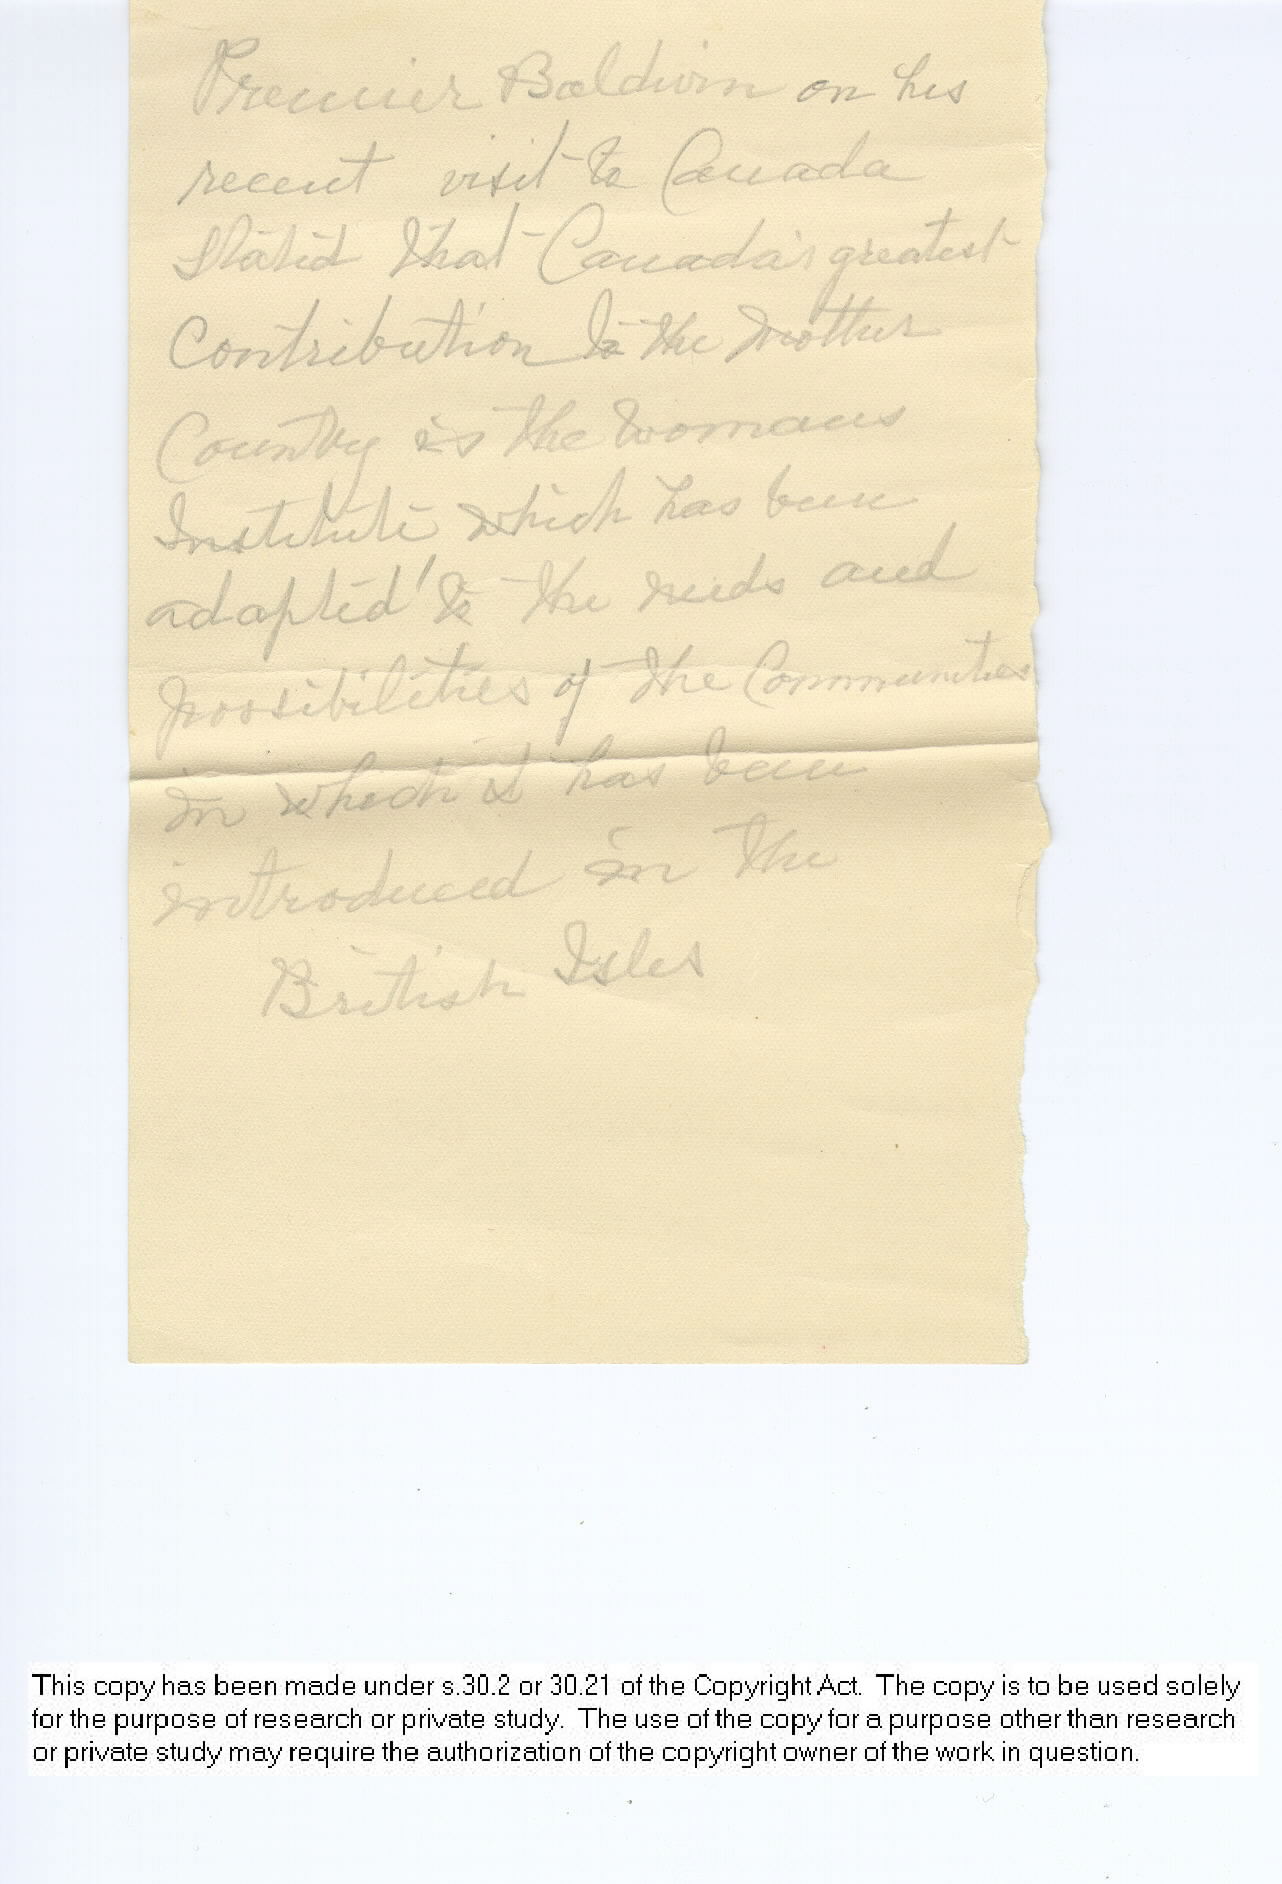 Premier Baldwin on his
recent visit to Canada
stated that Canada's greatest
Contribution to the Mother
Country is the Womans
Institute which has been
adapted to the needs and
possibilities of the Communities
in which it has been
introduced in the
British Isles
This copy has been made under s.30.2 or 30.21 of the Copyright Act. The copy is to be used solely
for the purpose of research or private study. The use of the copy for a purpose other than research
or private study may require the authorization of the copyright owner of the work in question.